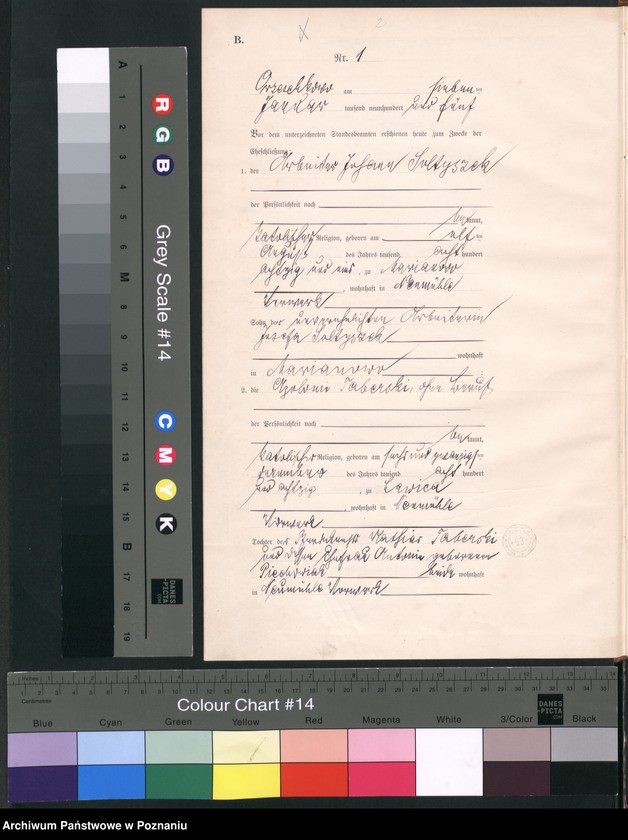 B.
Nr. 1
am sieben ten
Januar tausend neunhundert und fünf
Vor dem unterzeichneten Standesbeamten erschienen heute zum Zwecke der
Eheschließung:
1. der Arbeiter Johann Soltyszek
der Persönlichkeit nach
be kannt,
katholischer Religion, geboren am elf ten
August des Jahres tausend acht hundert
achtzig und eins, zu Marianowo
, wohnhaft in Neumühle
Vorwerk
Sohn der unverehelichten Arbeiterin
Josefa Soltyszek
wohnhaft
in Marianowo
2. die Apolonie Taberski, ohne Beruf
der Persönlichkeit nach
be kannt,
katholischer Religion, geboren am sechs und zwanzigsten
des Jahres tausend acht hundert
und achtzig, zu Lawica
, wohnhaft in Neumühle
Vorwerk
Tochter des Mathias Taberski
und dessen Ehefrau Antonie geborenen
beide wohnhaft
in Neumühle Vorwerk
A 1 2 3 4 5 6 M 8 9 10 11 12 13 14 15 B 17 18 19
R G B
Grey Scale #14
C M Y K
DANES-PICTA.COM
Inches
Centimetres
Colour Chart #14
DANES-PICTA.COM
Blue Cyan Green Yellow Red Magenta White 3/Color Black
Archiwum Państwowe w Poznaniu